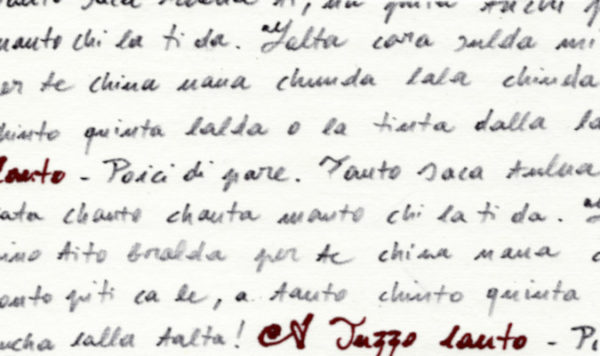 manto chi la ti da. Lalta cara sulda mi
per te china nana chunda lala chinda
chinto quinta lalda o la tinta dalla la
lanto - Poici di pare. Tanto saca
chanto chanta manto chi la ti da.
tito bralda per te china nana
piti ca le, a tanto chinto quinta
lalla talta! Tuzzo lanto -